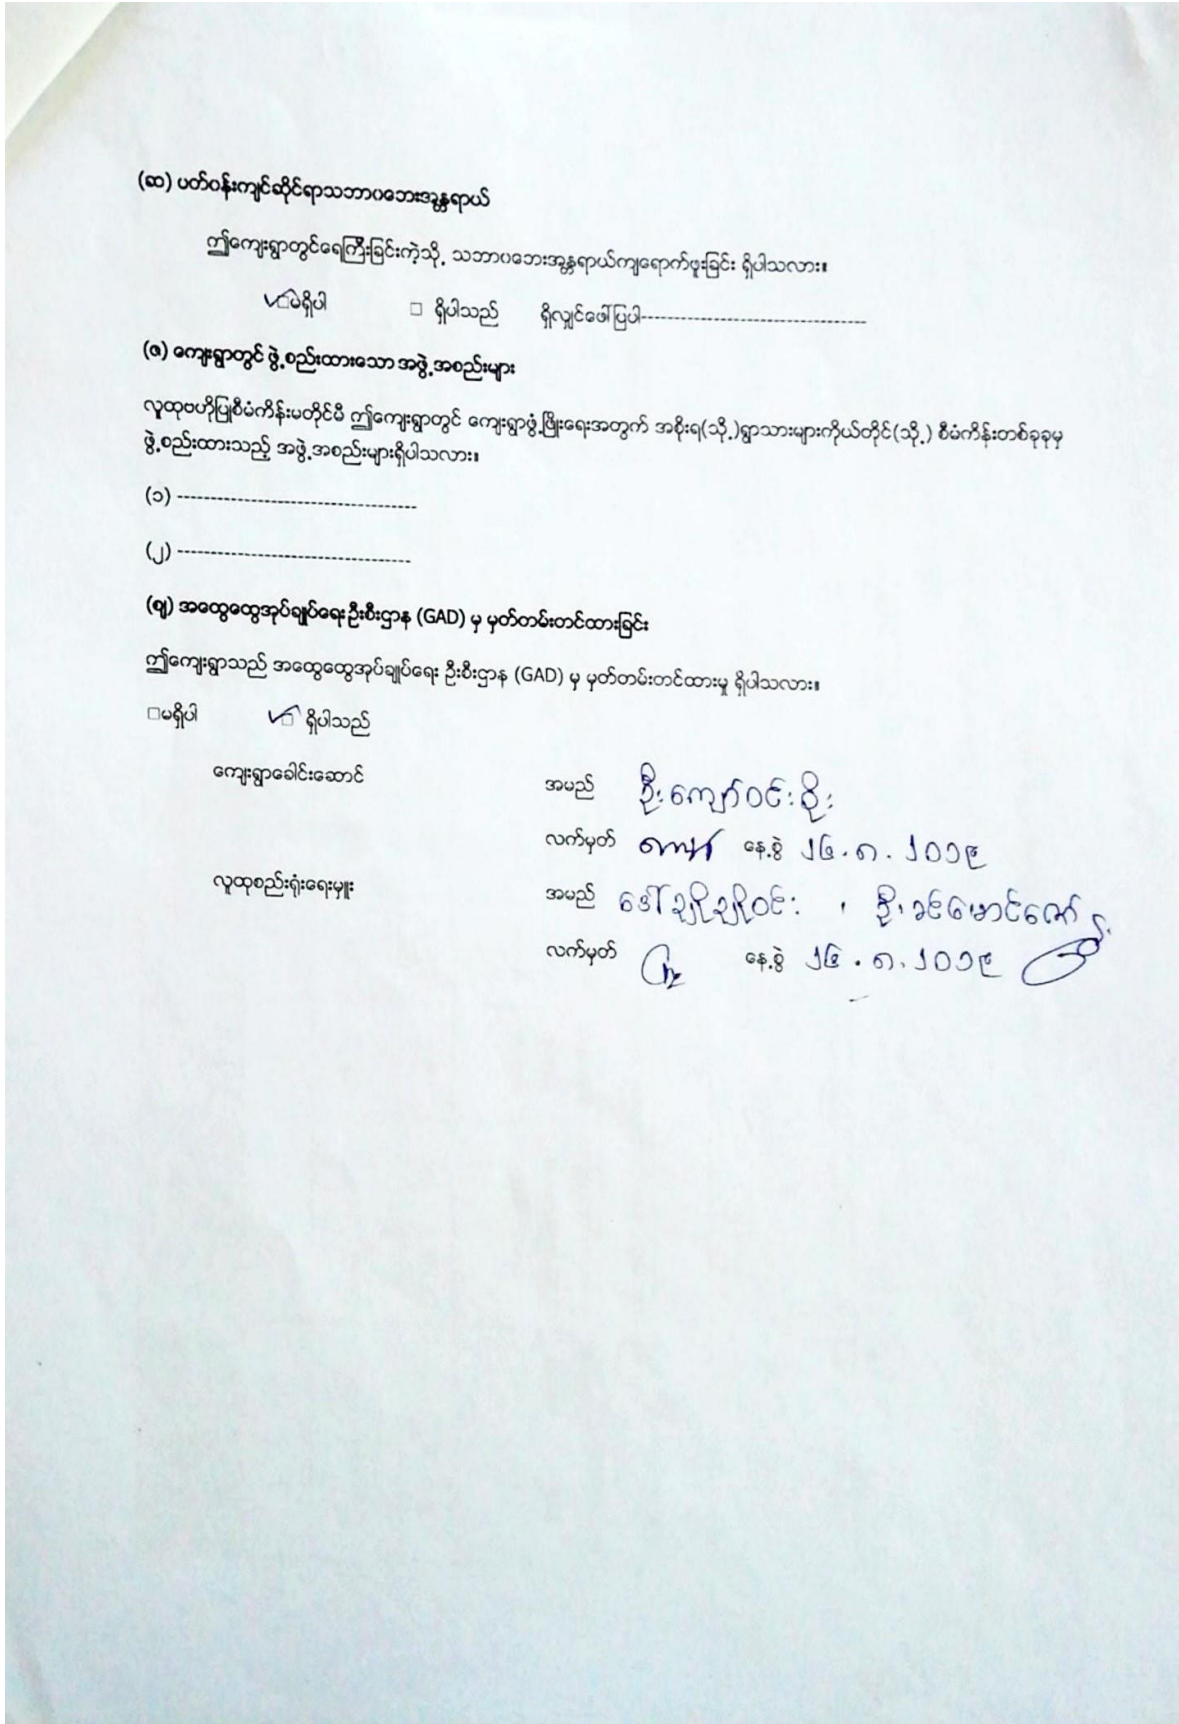 (ဆ) ပတ်ဝန်းကျင်ဆိုင်ရာသဘာဝဘေးအန္တရာယ်
ဤကျေးရွာတွင်ရေကြီးခြင်းကဲ့သို့ သဘာဝဘေးအန္တရာယ်ကျရောက်ဖူးခြင်း ရှိပါသလား။
✓□မရှိပါ □ ရှိပါသည် ရှိလျှင်ဖော်ပြပါ----------------------------------
(ဇ) ကျေးရွာတွင် ဖွဲ့စည်းထားသော အဖွဲ့အစည်းများ
လူထုဗဟိုပြုစီမံကိန်းမတိုင်မီ ဤကျေးရွာတွင် ကျေးရွာဖွံ့ဖြိုးရေးအတွက် အစိုးရ(သို့)ရွာသားများကိုယ်တိုင်(သို့) စီမံကိန်းတစ်ခုခုမှ
ဖွဲ့စည်းထားသည့် အဖွဲ့အစည်းများရှိပါသလား။
(၁) ------------------------------------
(၂) -----------------------------------
(ဈ) အထွေထွေအုပ်ချုပ်ရေးဦးစီးဌာန (GAD) မှ မှတ်တမ်းတင်ထားခြင်း
ဤကျေးရွာသည် အထွေထွေအုပ်ချုပ်ရေး ဦးစီးဌာန (GAD) မှ မှတ်တမ်းတင်ထားမှု ရှိပါသလား။
□မရှိပါ ✓□ ရှိပါသည်
ကျေးရွာခေါင်းဆောင် အမည် ဦးကျော်ဝင်းစိုး
လက်မှတ် နေ့စွဲ ၂၆.၈.၂၀၁၉
လူထုစည်းရုံးရေးမှူး အမည် ဒေါ်ချိုချိုဝင်း ၊ ဦးခင်မောင်ဇော်
လက်မှတ် နေ့စွဲ ၂၆.၈.၂၀၁၉